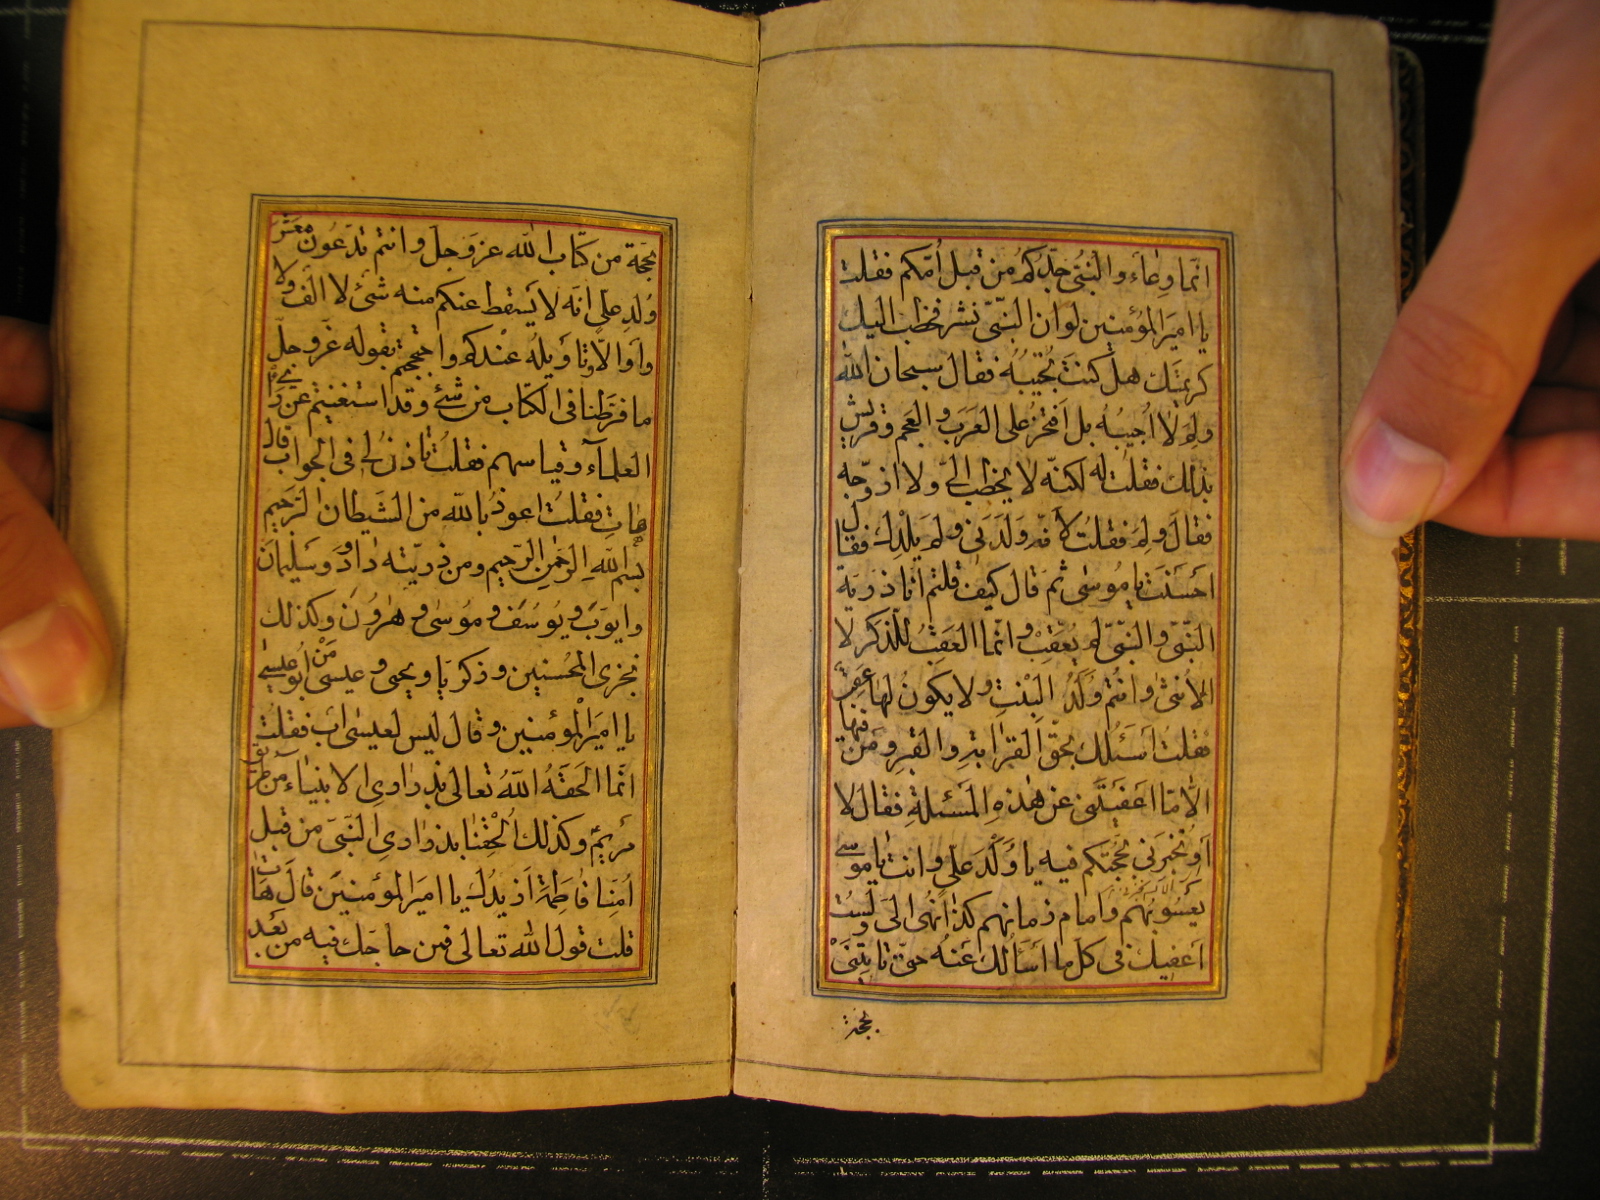 انّما وِعاء والنبىّ جدّكم من قبل اُمّكم فقلت
يا امير المؤمنين لو ان النّبىّ نشر فخطب اليك
كريمتك هل كنت تُجيبُهُ فقال سبحان الله
ولم لا اُجيبُه بل افتخر على العرب و العجم وقريش
بذلك فقلت له لكنّه لا يخطب الىّ ولا ازوّجه
فقال ولِمَ فقلت لأنّه ولدنى ولم يلدك فقال
احسنت يا موسى ثم قال كيف قلتم انّا ذريّة
النّبىّ والنّبىّ لم يُعقِبْ وانّما العقِبُ للذكر لا
الأنثى وانتم ولَدُ البِنتِ ولا يكونُ لها عقِبٌ
فقلت اسئلك بحقّ القرابة والقبر ومن فيها
الّا مّا اعفيتنى عن هذه المسئلة فقال لا
او تُخبرنى بحجّتكم فيه يا وُلْدَ علىّ وانت يا موسى
يعسوبُهُم وامام زمانهم كذا انهى الىّ ولست
اعفيك فى كل ما اسألك عنه حتّى تأتينى
بحجّة
بحجّة من كتاب الله عزوجل وانتم تدّعون معشر
وُلدِ علىّ انّه لا يسقط عنكم منه شئ لا الف ولا
واو الّا وتأويله عندكم واحتججتم بقوله عزّوجلّ
ما فرّطنا فى الكتاب من شئ وقد استغنيتم عن رأى
العلمآء وقياسهم فقلت تأذن لى فى الجواب قال
هاتِ فقلت اعوذ بالله من الشيطان الرجيم
بسم الله الرحمن الرحيم ومن ذريّته داود وسليمان
وايوب ويوسف وموسى وهرون وكذلك
نجزى المحسنين وذكريّا ويحيى وعيسى مَنْ ابو عيسى
يا امير المؤمنين وقال ليس لعيسى اب فقلت
انّما الحقه الله تعالى بذرارى الانبياء من طريق
مريم وكذلك اُلحِقنا بذرارى النّبىّ من قبل
اُمّنا فاطمة ازيدُك يا امير المؤمنين قال هات
قلت قول الله تعالى فمن حاجّك فيه من بعد